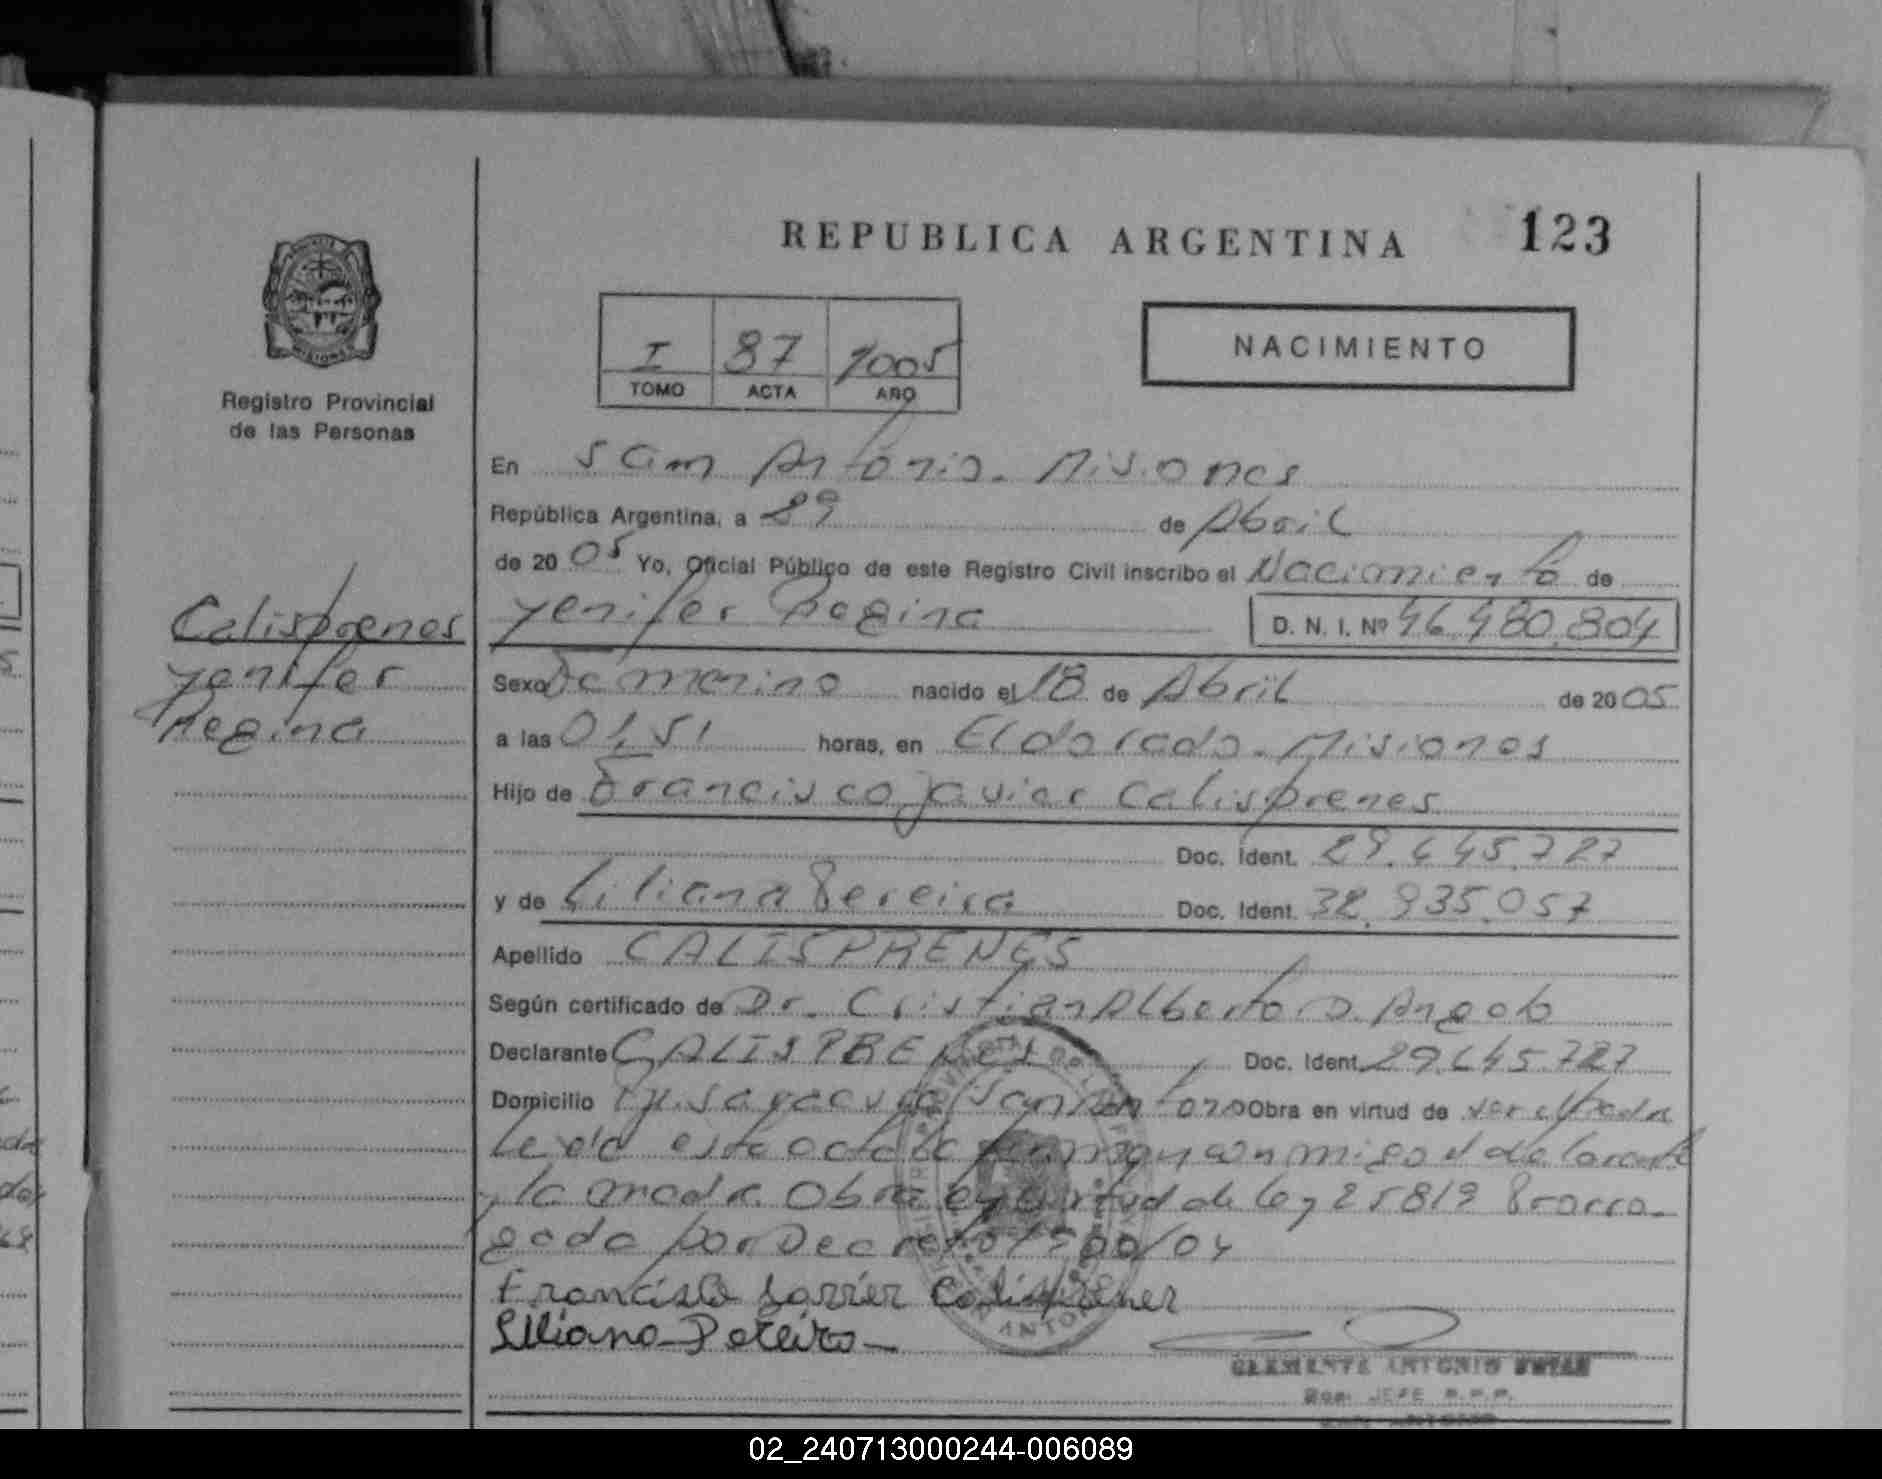 REPUBLICA ARGENTINA 123
I 87 2005
TOMO ACTA AÑO
NACIMIENTO
MISIONES
Registro Provincial
de las Personas
Calisprenes
Yenifer
Regina
En San Antonio. Misiones
República Argentina, a 29 de Abril
de 2005 Yo, Oficial Público de este Registro Civil inscribo el Nacimiento de
Yenifer Regina D. N. I. Nº 46.480.804
Sexo Femenino nacido el 18 de Abril de 2005
a las 01,51 horas, en Eldorado. Misiones
Hijo de Francisco Javier Calisprenes
Doc. Ident. 29.645.727
y de Liliana Pereira Doc. Ident. 38.935.057
Apellido CALISPRENES
Según certificado de Dr. Cristian Alberto D. Angelo
Declarante CALISPRENES Doc. Ident. 29.645.727
Domicilio San Antonio Obra en virtud de
Leida este acta la firman conmigo el declarante
y la madre. Obra en virtud de ley 25819 Prorro-
gada por Decreto 1500/04
Francisco Javier Calisprenes
Liliana Pereira
CLEMENTE ANTONIO
JEFE R.P.P.
SAN ANTONIO
02_240713000244-006089